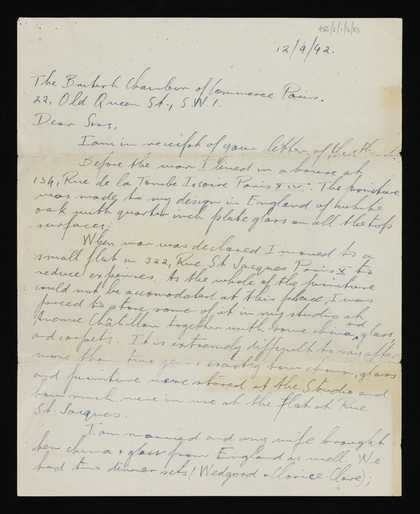 12/9/42.
The British Chamber of Commerce Paris.
22, Old Queen St., S.W.1.
Dear Sirs,
I am in receipt of your letter of the
Before the war I lived in a house at
134, Rue de la Tombe Issoire Paris XIV. The furniture
was made to my design in England of white
oak with quarter inch plate glass on all the top
surfaces;
When war was declared I moved to a
small flat in 322, Rue St Jacques Paris V to
reduce expenses. As the whole of the furniture
could not be accomodated at this place I was
forced to store some of it in my studio at
Avenue Châtillon together with some china, glass
and carpets. It is extremely difficult to say after
more than two years exactly how china, glass
and furniture were stored at the Studio and
how much were in use at the flat at Rue
St Jacques.
I am married and my wife brought
her china & glass from England as well. We
had two dinner sets! Wedgood & Clarice